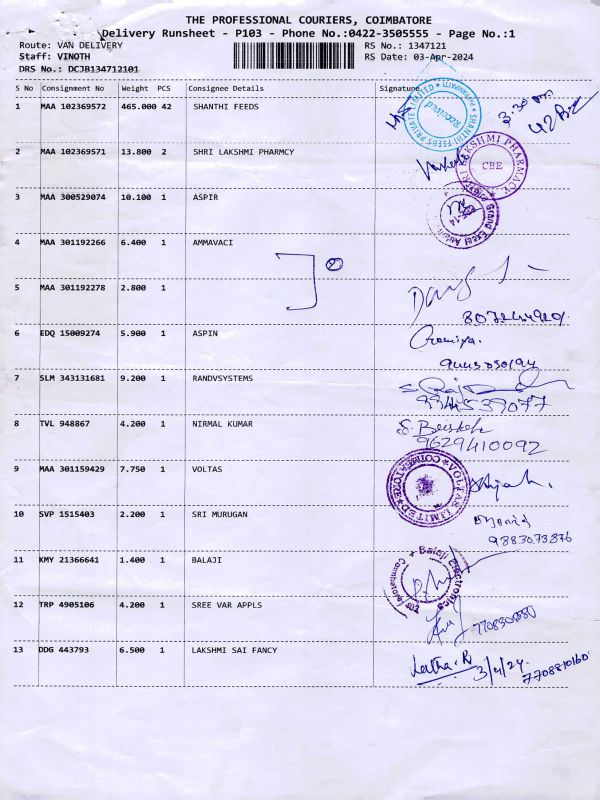 THE PROFESSIONAL COURIERS, COIMBATORE
Delivery Runsheet - P103 - Phone No.:0422-3505555 - Page No.:1
Route: VAN DELIVERY RS No.: 1347121
Staff: VINOTH RS Date: 03-Apr-2024
DRS No.: DCJB134712101
S No Consignment No Weight PCS Consignee Details Signature
1 MAA 102369572 465.000 42 SHANTHI FEEDS
SHANTHI FEEDS PRIVATE LIMITED
Received
3.30 pm
2 MAA 102369571 13.800 2 SHRI LAKSHMI PHARMCY
LAKSHMI PHARMACY
CBE
3 MAA 300529074 10.100 1 ASPIR
4 MAA 301192266 6.400 1 AMMAVACI
5 MAA 301192278 2.800 1
6 EDQ 15009274 5.900 1 ASPIN
7 SLM 343131681 9.200 1 RANDVSYSTEMS
9944539077
8 TVL 948867 4.200 1 NIRMAL KUMAR
9629410092
9 MAA 301159429 7.750 1 VOLTAS
VOLTAS LIMITED
COIMBATORE
10 SVP 1515403 2.200 1 SRI MURUGAN
9883073876
11 KMY 21366641 1.400 1 BALAJI
For Balaji Electronics
Coimbatore
12 TRP 4905106 4.200 1 SREE VAR APPLS
13 DDG 443793 6.500 1 LAKSHMI SAI FANCY
Latha.R 3/4/24
7708810160